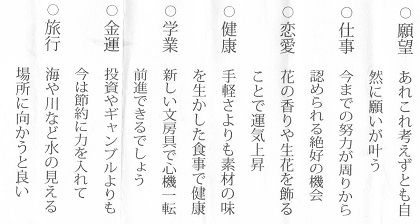 ○願望　あれこれ考えずとも自
然に願いが叶う
○仕事　今までの努力が周りから
認められる絶好の機会
○恋愛　花の香りや生花を飾る
ことで運気上昇
○健康　手軽さよりも素材の味
を生かした食事で健康
○学業　新しい文房具で心機一転
前進できるでしょう
○金運　投資やギャンブルよりも
今は節約に力を入れて
○旅行　海や川など水の見える
場所に向かうと良い